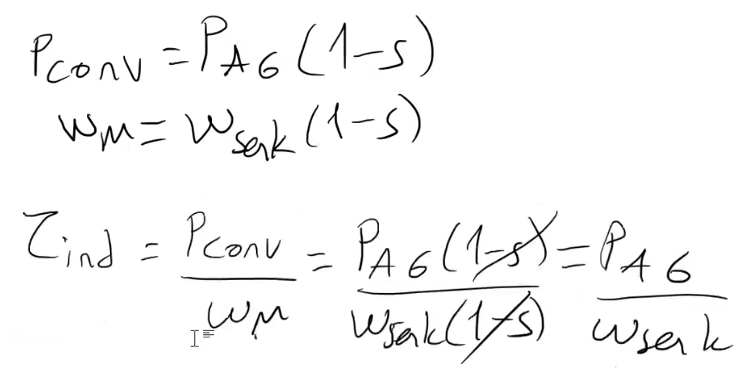 P_conv = P_AG (1-s)
ω_M = ω_senk (1-s)
τ_ind = P_conv / ω_M = P_AG (1-s) / ω_senk (1-s) = P_AG / ω_senk